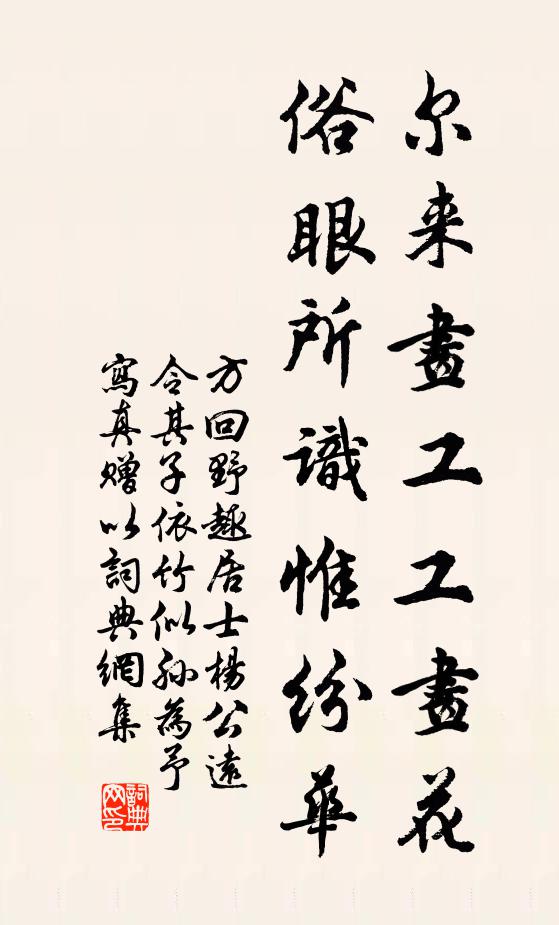 尔来畫工工畫花
俗眼所識惟纷華
方回野趣居士楊公遠
令其子依竹似孙為予
寫真赠以詞典網集
詞典网印